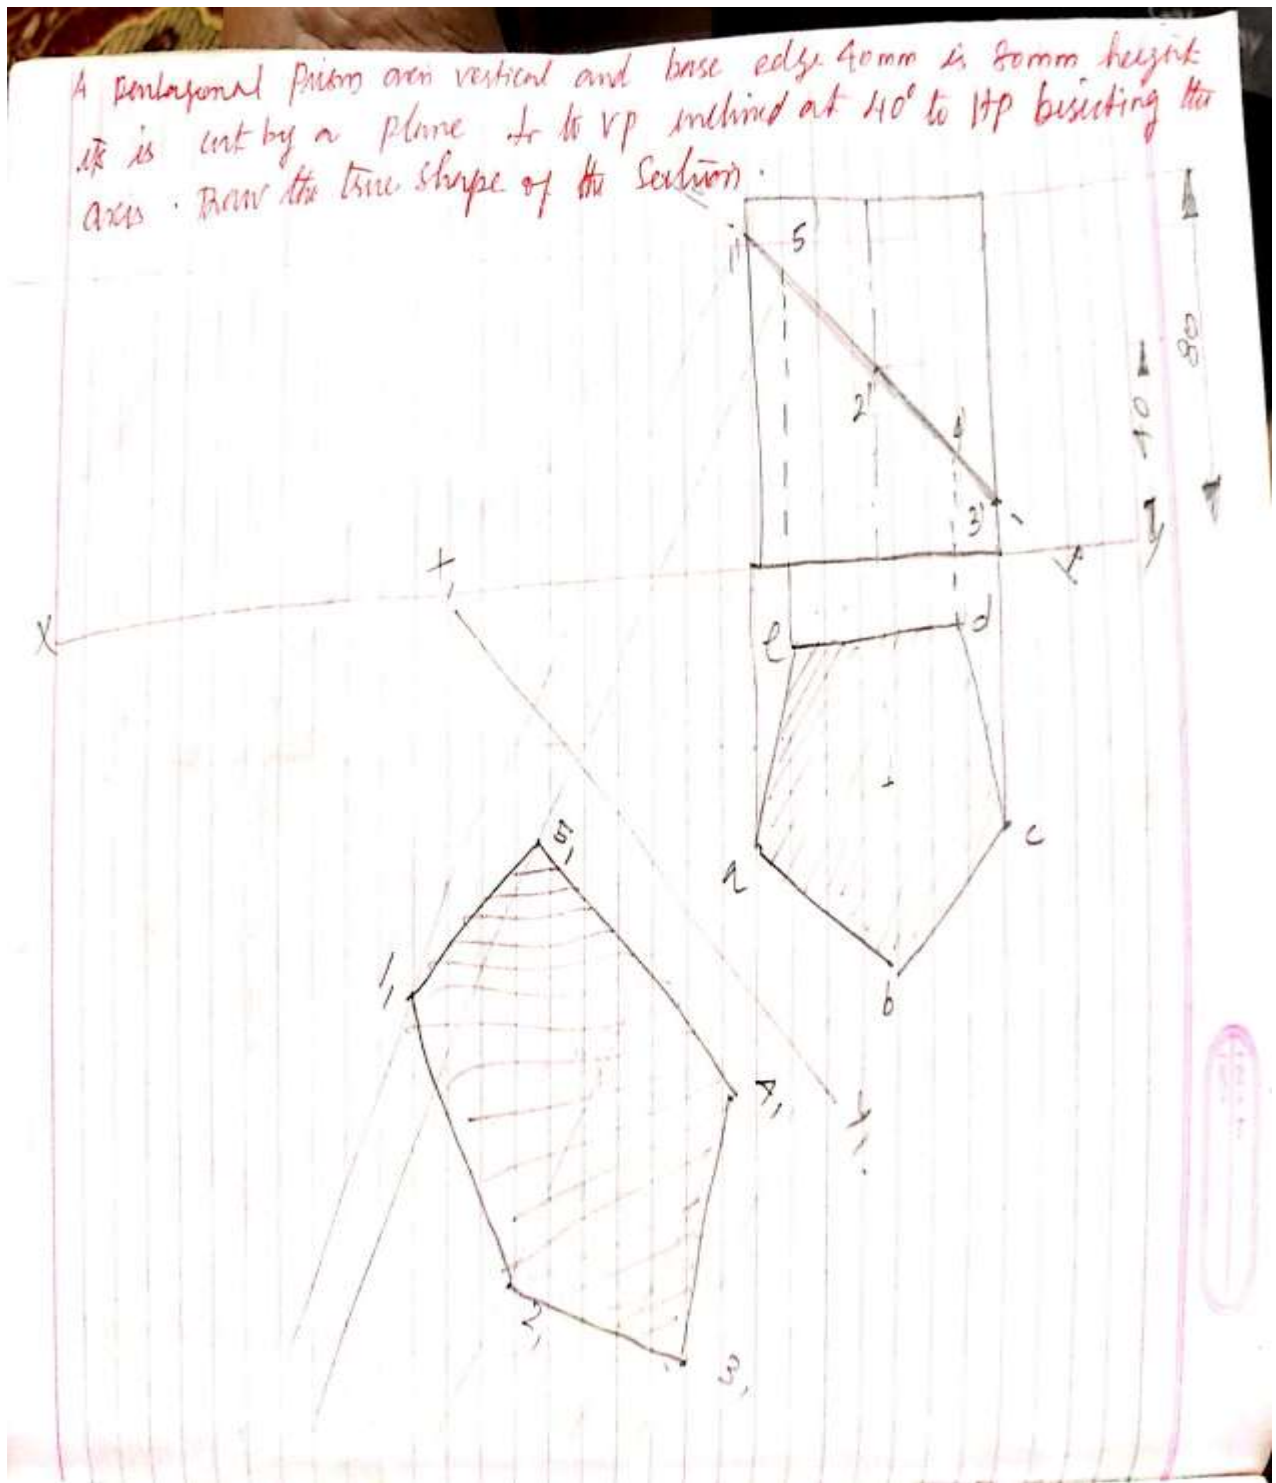 A pentagonal prism axis vertical and base edge 40mm is 80mm height
it is cut by a plane ⊥r to VP inclined at 40° to HP bisecting the
axis. Draw the true shape of the Section.
1' 5
80
2' 4'
40
3'
X X₁ Y
e d
a c
b
5₁
1₁
4₁ Y₁
2₁
3₁